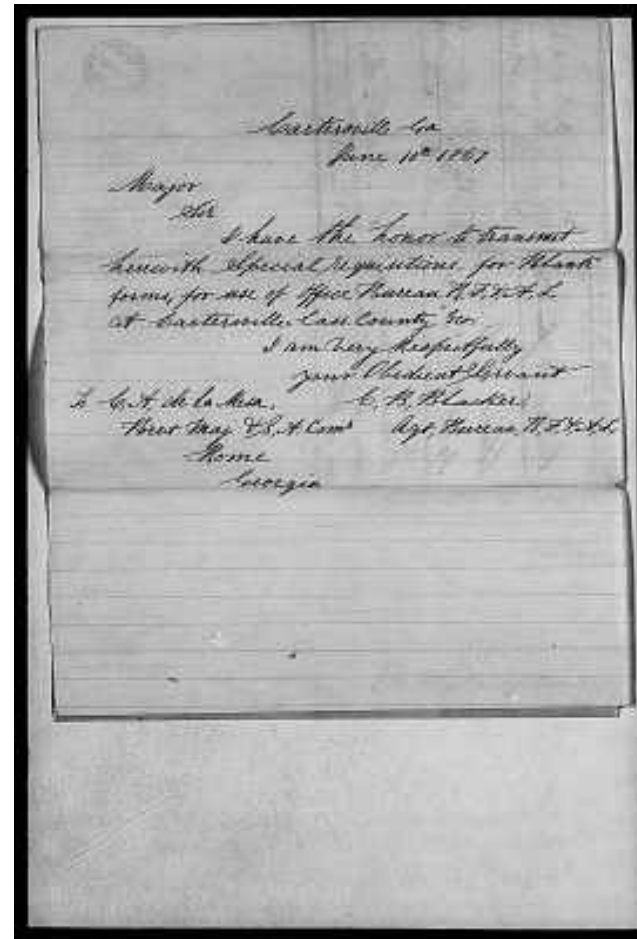 Cartersville Ga
June 10th 1867
Major
Sir
I have the honor to transmit
herewith Special requisitions for Blank
forms, for use of Office Bureau R.F.&A.L
at Cartersville Cass County Geo.
I am Very Respectfully
your Obedient Servant
To C. A. de la Mesa, C. B. Blacker
Brevt Maj & S. A. Comr Agt, Bureau, R.F.&A.L.
Rome
Georgia